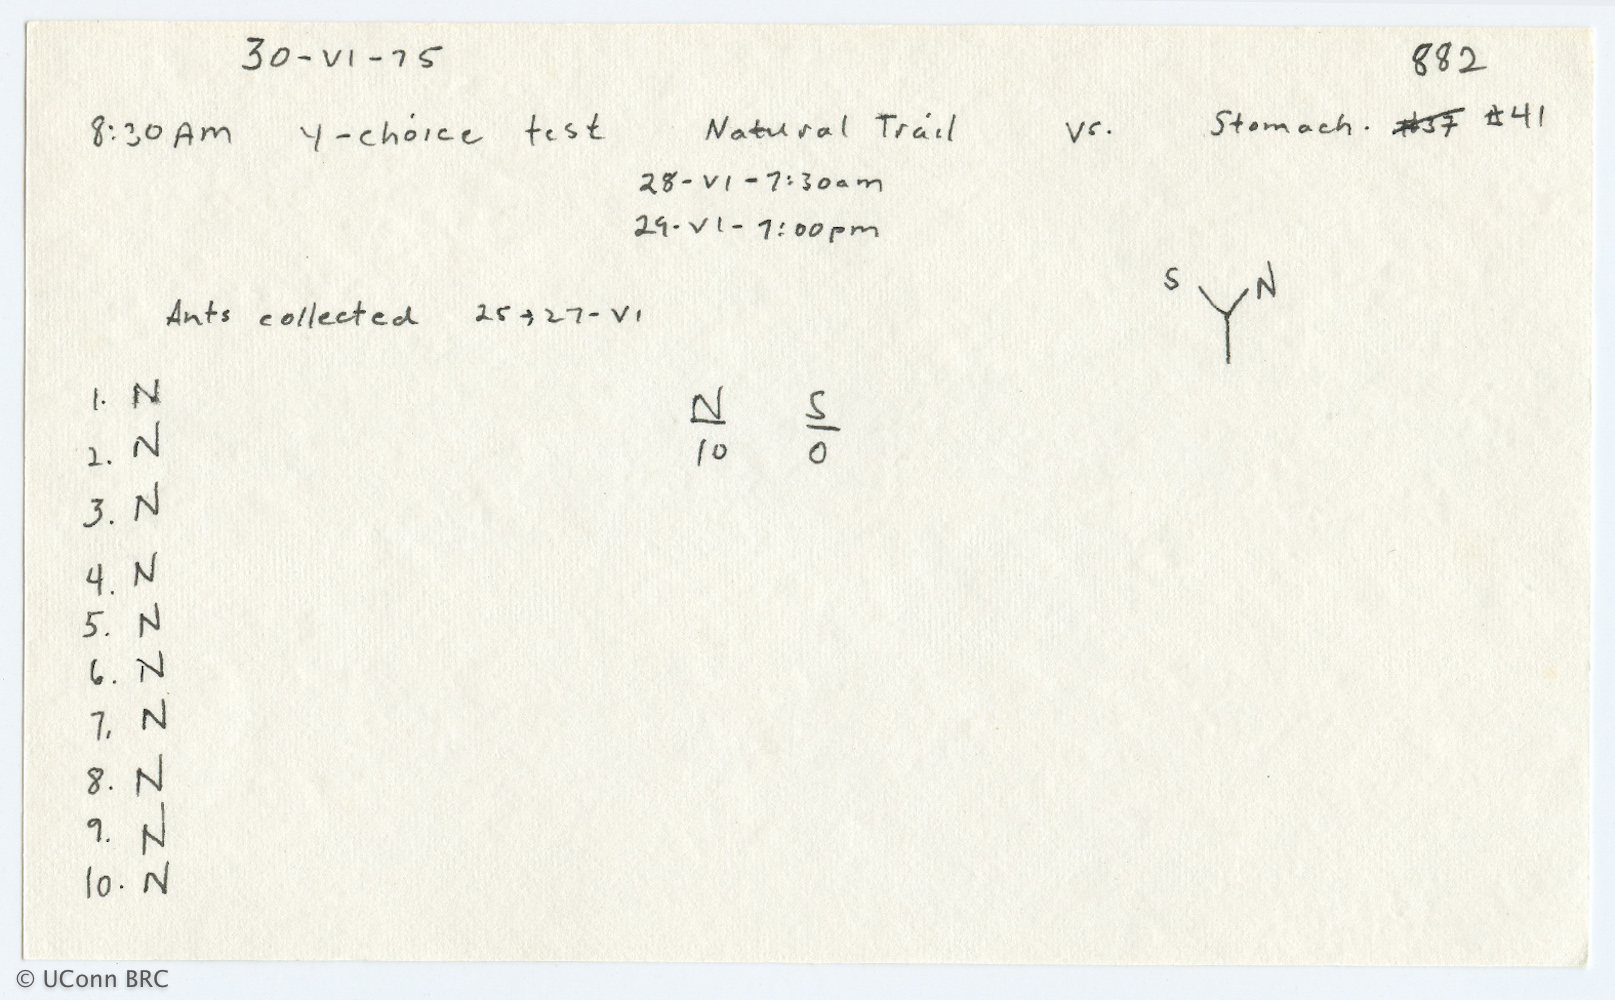 30-VI-75 882
8:30 Am Y-choice test Natural Trail vs. Stomach. #37 #41
28-VI-7:30am
29-VI-7:00pm
S N
Ants collected 25→27-VI
1. N
N S
10 0
2. N
3. N
4. N
5. N
6. N
7. N
8. N
9. N
10. N
© UConn BRC